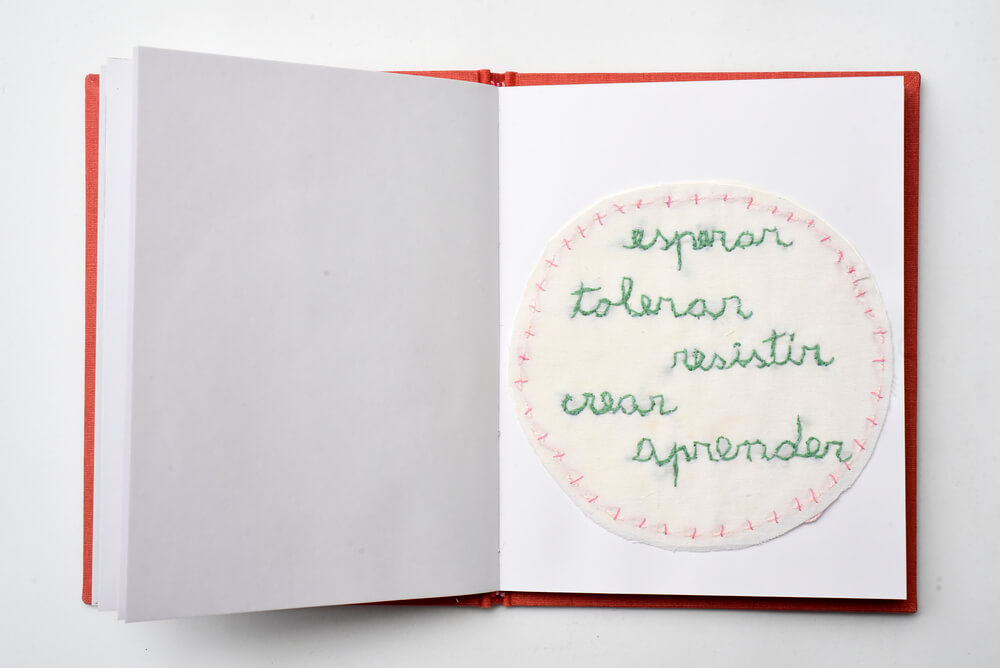 esperar
tolerar
resistir
crear
aprender